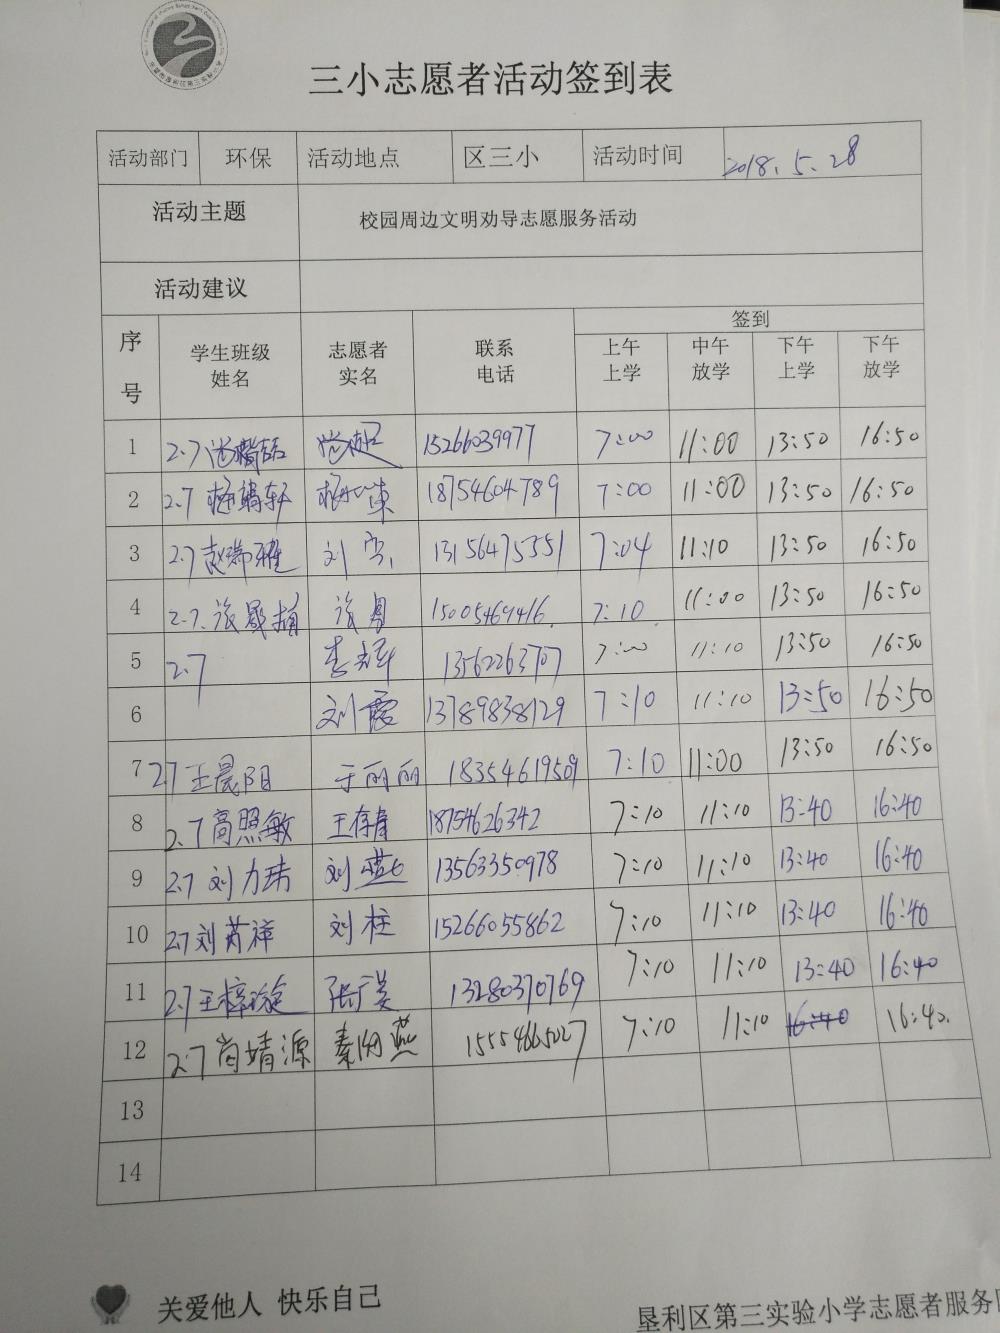 三小志愿者活动签到表
活动部门 环保 活动地点 区三小 活动时间 2018.5.28
活动主题 校园周边文明劝导志愿服务活动
活动建议
序号 学生班级姓名 志愿者实名 联系电话 签到
上午上学 中午放学 下午上学 下午放学
1 2.7 15266039977 7:00 11:00 13:50 16:50
2 2.7 18754604789 7:00 11:00 13:50 16:50
3 2.7 赵瑞雅 刘 13156475351 7:04 11:10 13:50 16:50
4 2.7. 15005469416. 7:10 11:00 13:50 16:50
5 2.7 李 13562263707 7:00 11:10 13:50 16:50
6 刘霞 13789838129 7:10 11:10 13:50 16:50
7 2.7 王晨阳 于丽丽 18354619509 7:10 11:00 13:50 16:50
8 2.7 高照敏 王存青 18754626342 7:10 11:10 13:40 16:40
9 2.7 刘力玮 刘燕 13563350978 7:10 11:10 13:40 16:40
10 2.7 刘芮祥 刘柱 15266055862 7:10 11:10 13:40 16:40
11 2.7 王梓璇 张广美 13280370769 7:10 11:10 13:40 16:40
12 2.7 尚靖源 秦阳燕 15554665027 7:10 11:10 16:40 16:40.
13
14
关爱他人 快乐自己
垦利区第三实验小学志愿者服务